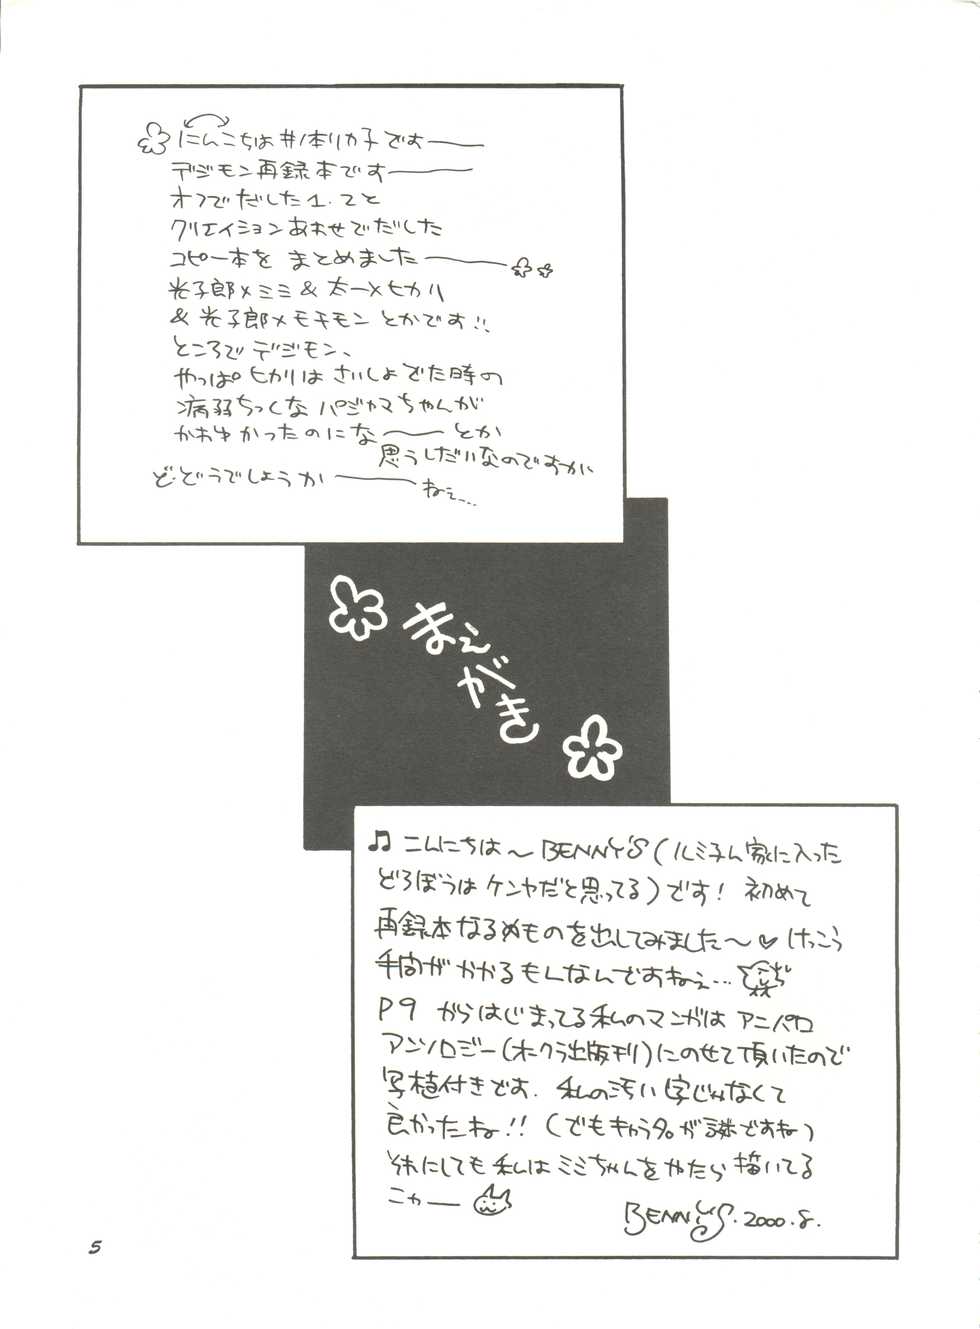 にんこちは井ノ本リカ子です――
デジモン再録本です――
オフでだした1.2と
クリエイションあわせでだした
コピー本を まとめました――
光子郎×ミミ&太一×ヒカリ
&光子郎×モチモン とかです!!
ところで デジモン、
やっぱ°ヒカリは さいしょでた時の
病弱ちっくな パジャマちゃんが
かわゆかったのにな――とか
思うしだいなのですがに
ど・どうでしょうか――
ねぇ…
まえ
がき
♫ こんにちは〜BENNY'S(ルミ子ん家に入った
どろぼうは ケンヤだと思ってる)です! 初めて
再録本なるものを出してみました〜♡ けっこう
手間がかかるもんなんですねぇ…
P9 からはじまってる私のマンガは アニパロ
アンソロジー(オークラ出版刊)にのせて頂いたので
写植付きです. 私の汚い字じゃなくて
良かったね!! (でもキャラ名が謎ですね)
それにしても 私は ミミちゃんを やたら 描いてる
ニャー
BENNY'S. 2000.8.
5